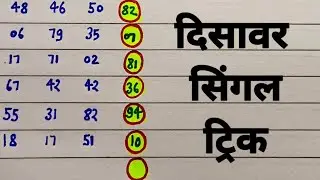 48 46 50 82
06 79 35
17 71 02 81
67 42 42 36
55 31 82 94
18 17 51 10
दिसावर
सिंगल
ट्रिक